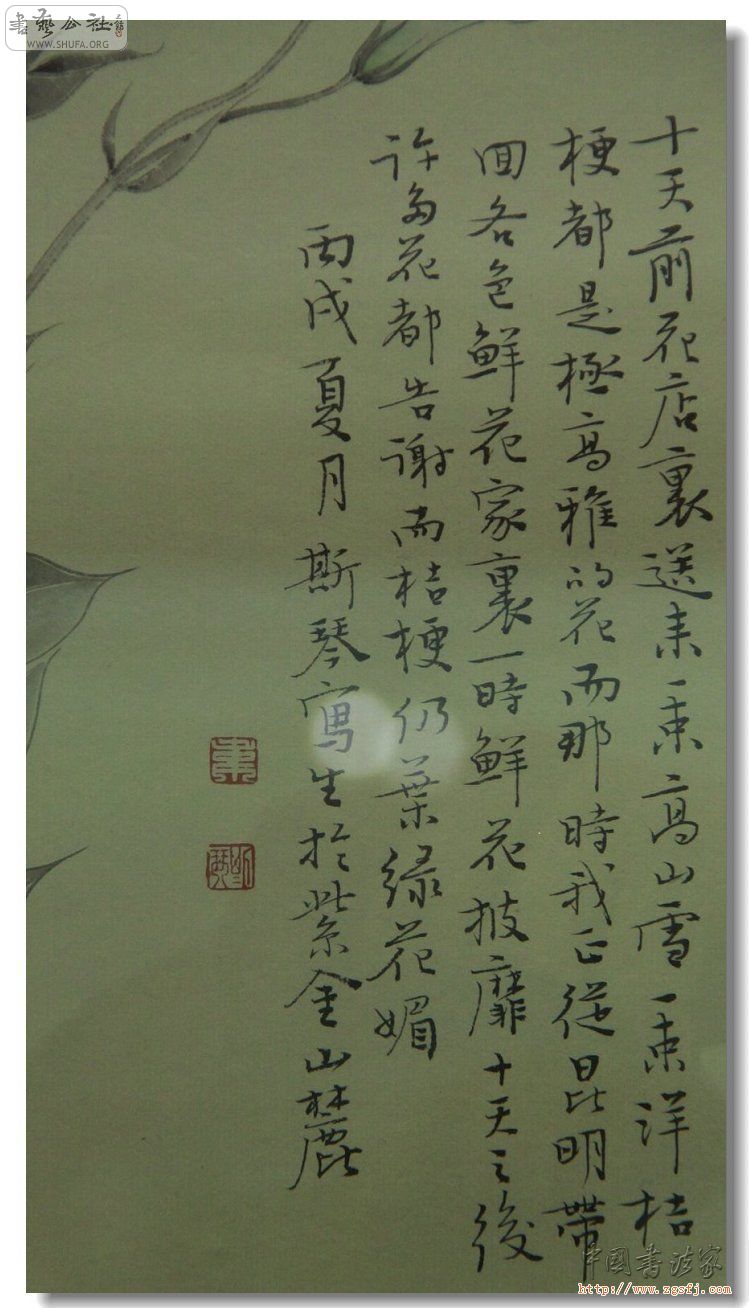 十天前花店裏送来一束高山雪一束洋桔
梗都是極高雅的花而那時我正從昆明帶
回各色鮮花家裏一時鮮花披靡十天之後
許多花都告谢而桔梗仍葉緑花媚
丙戌夏月斯琴寫生於紫金山麓
書藝公社
WWW.SHUFA.ORG
中國書法家
http://www.zgsfj.com